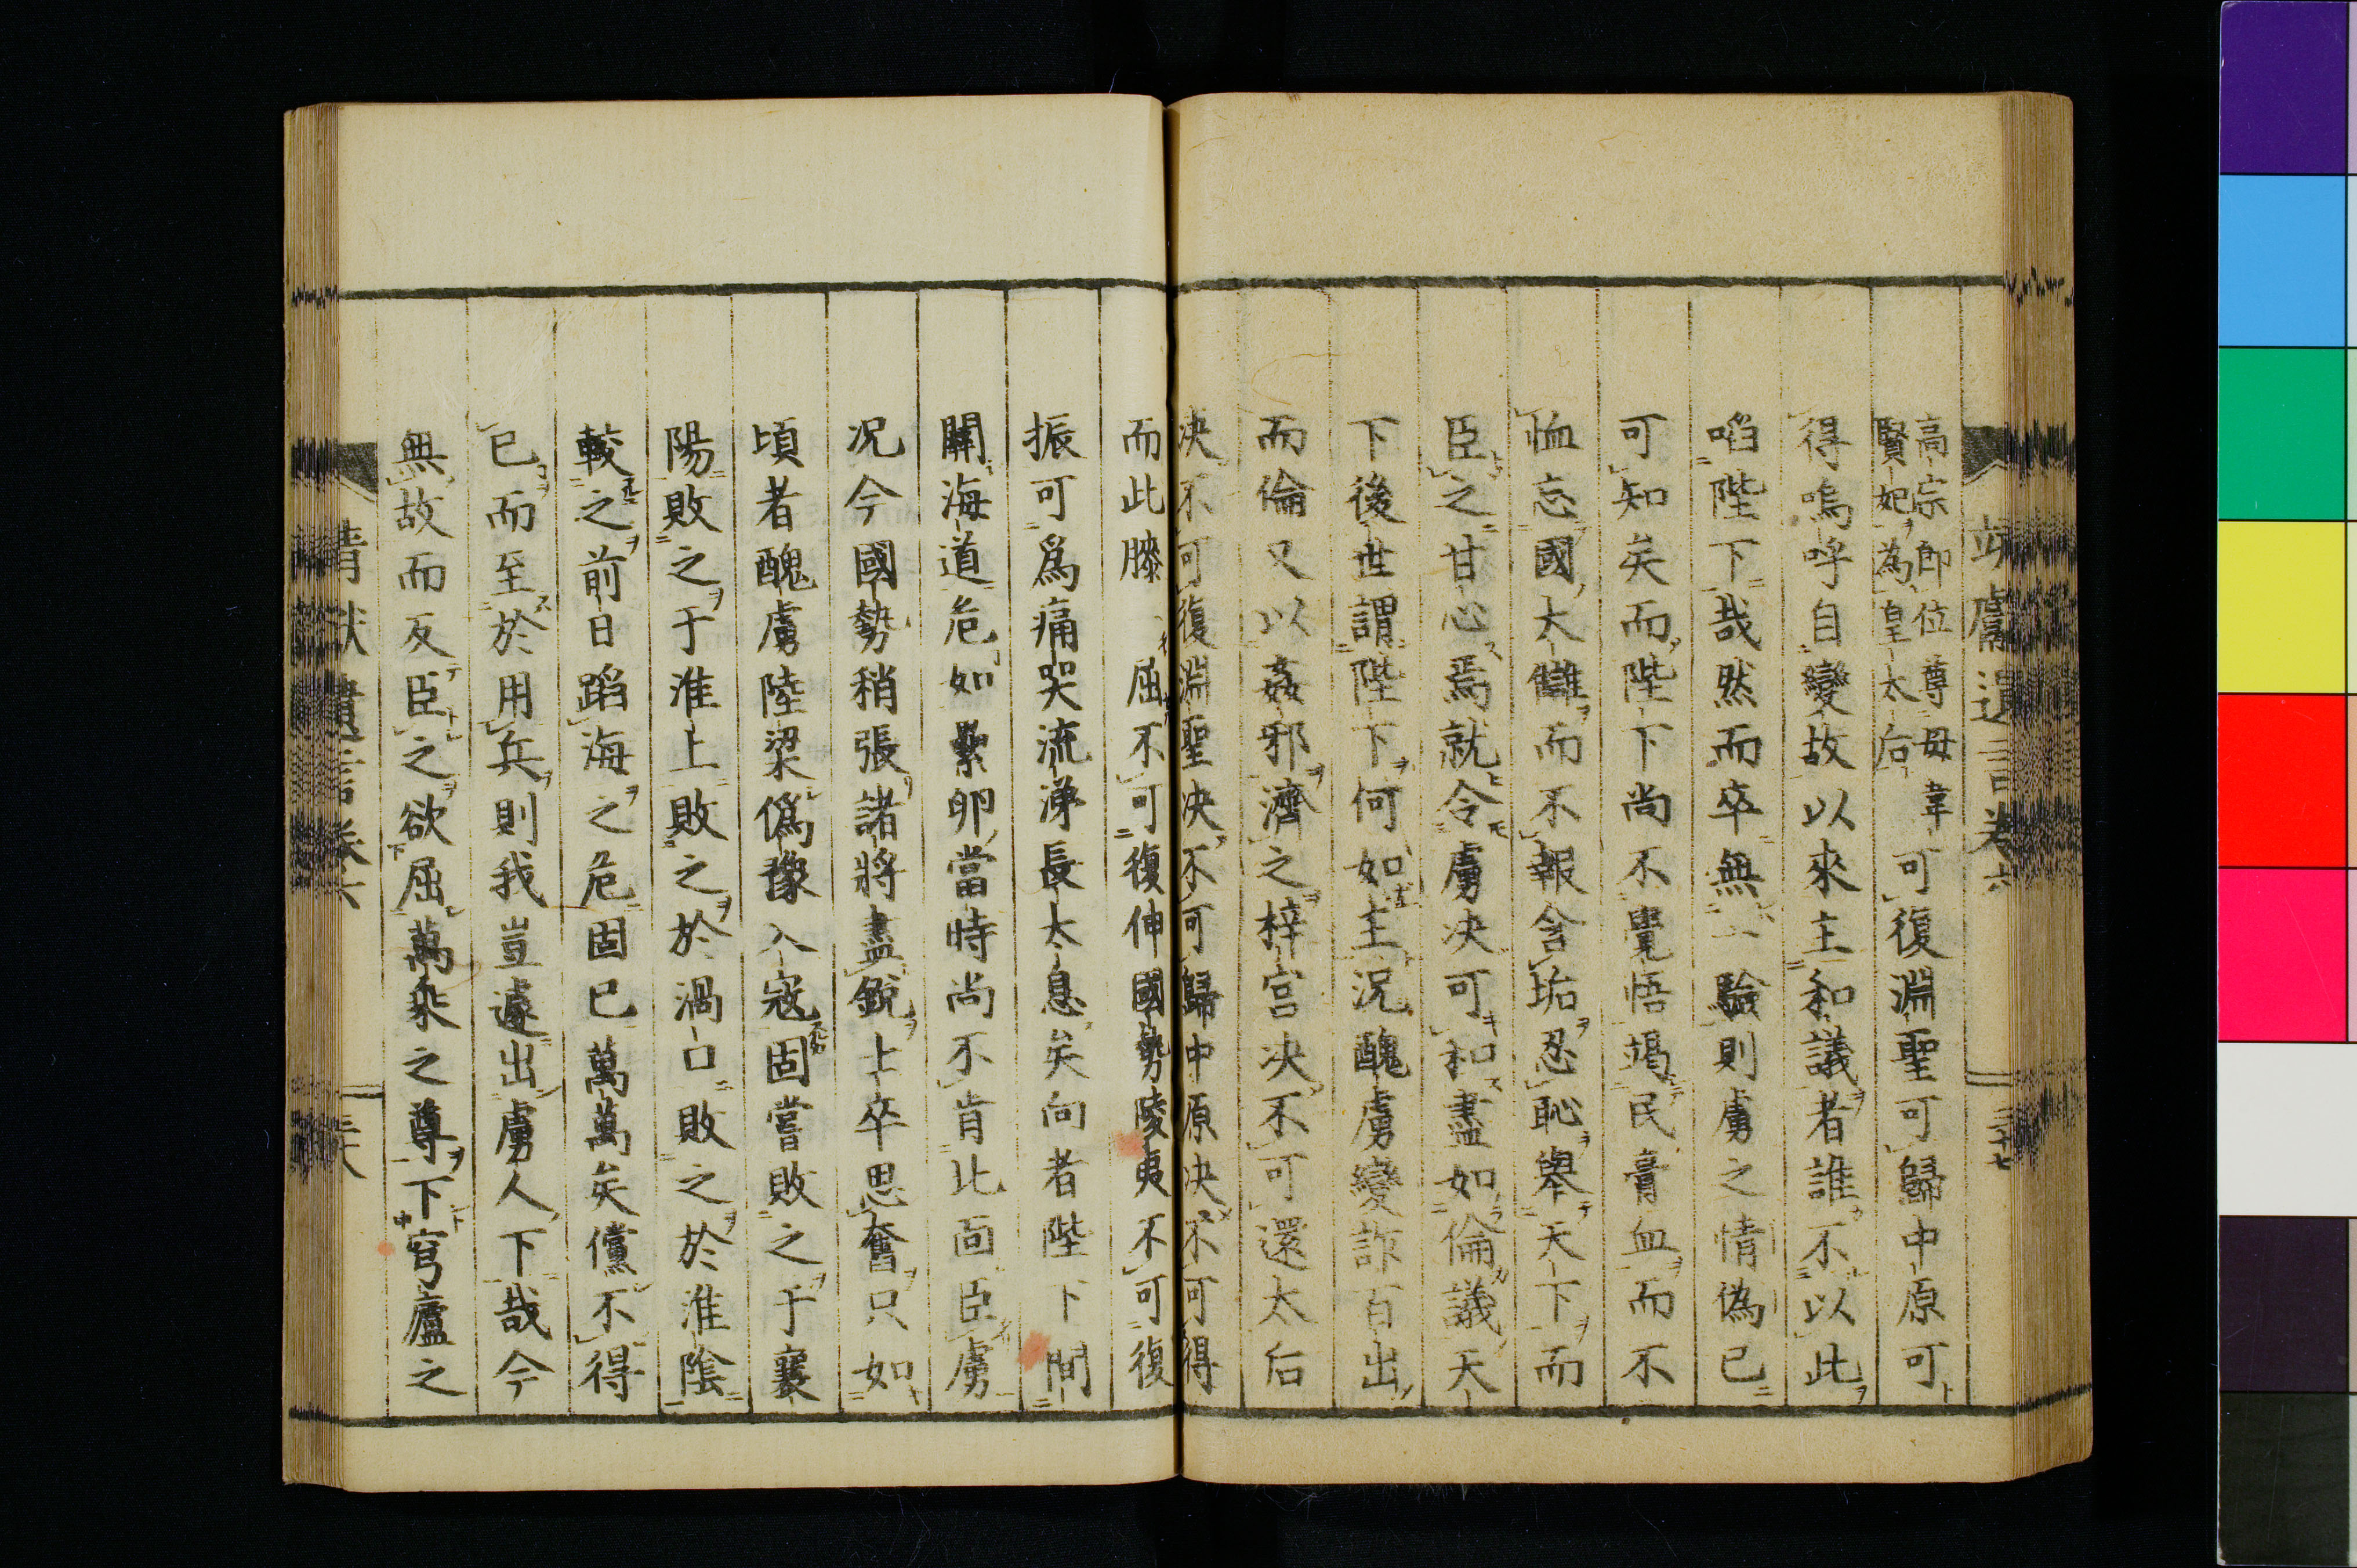 高宗即位尊母韋
賢妃為皇太后
可復淵聖可歸中原可
得嗚呼自變故以來主和議者誰不以此
啗陛下哉然而卒無一驗則虜之情偽已
可知矣而陛下尚不覺悟竭民膏血而不
恤忘國大讎而不報含垢忍恥舉天下而
臣之甘心焉就令虜决可和盡如倫議天
下後世謂陛下何如主况醜虜變詐百出
而倫又以姦邪濟之梓宮决不可還太后
决不可復淵聖决不可歸中原决不可得
而此膝一屈不可復伸國勢陵夷不可復
振可爲痛哭流涕長太息矣向者陛下間
關海道危如纍卵當時尚不肯北面臣虜
况今國勢稍張諸將盡銳士卒思奮只如
頃者醜虜陸梁僞豫入寇固嘗敗之于襄
陽敗之于淮上敗之於渦口敗之於淮陰
較之前日蹈海之危固已萬萬矣儻不得
已而至於用兵則我豈遽出虜人下哉今
無故而反臣之欲屈萬乘之尊下穹廬之